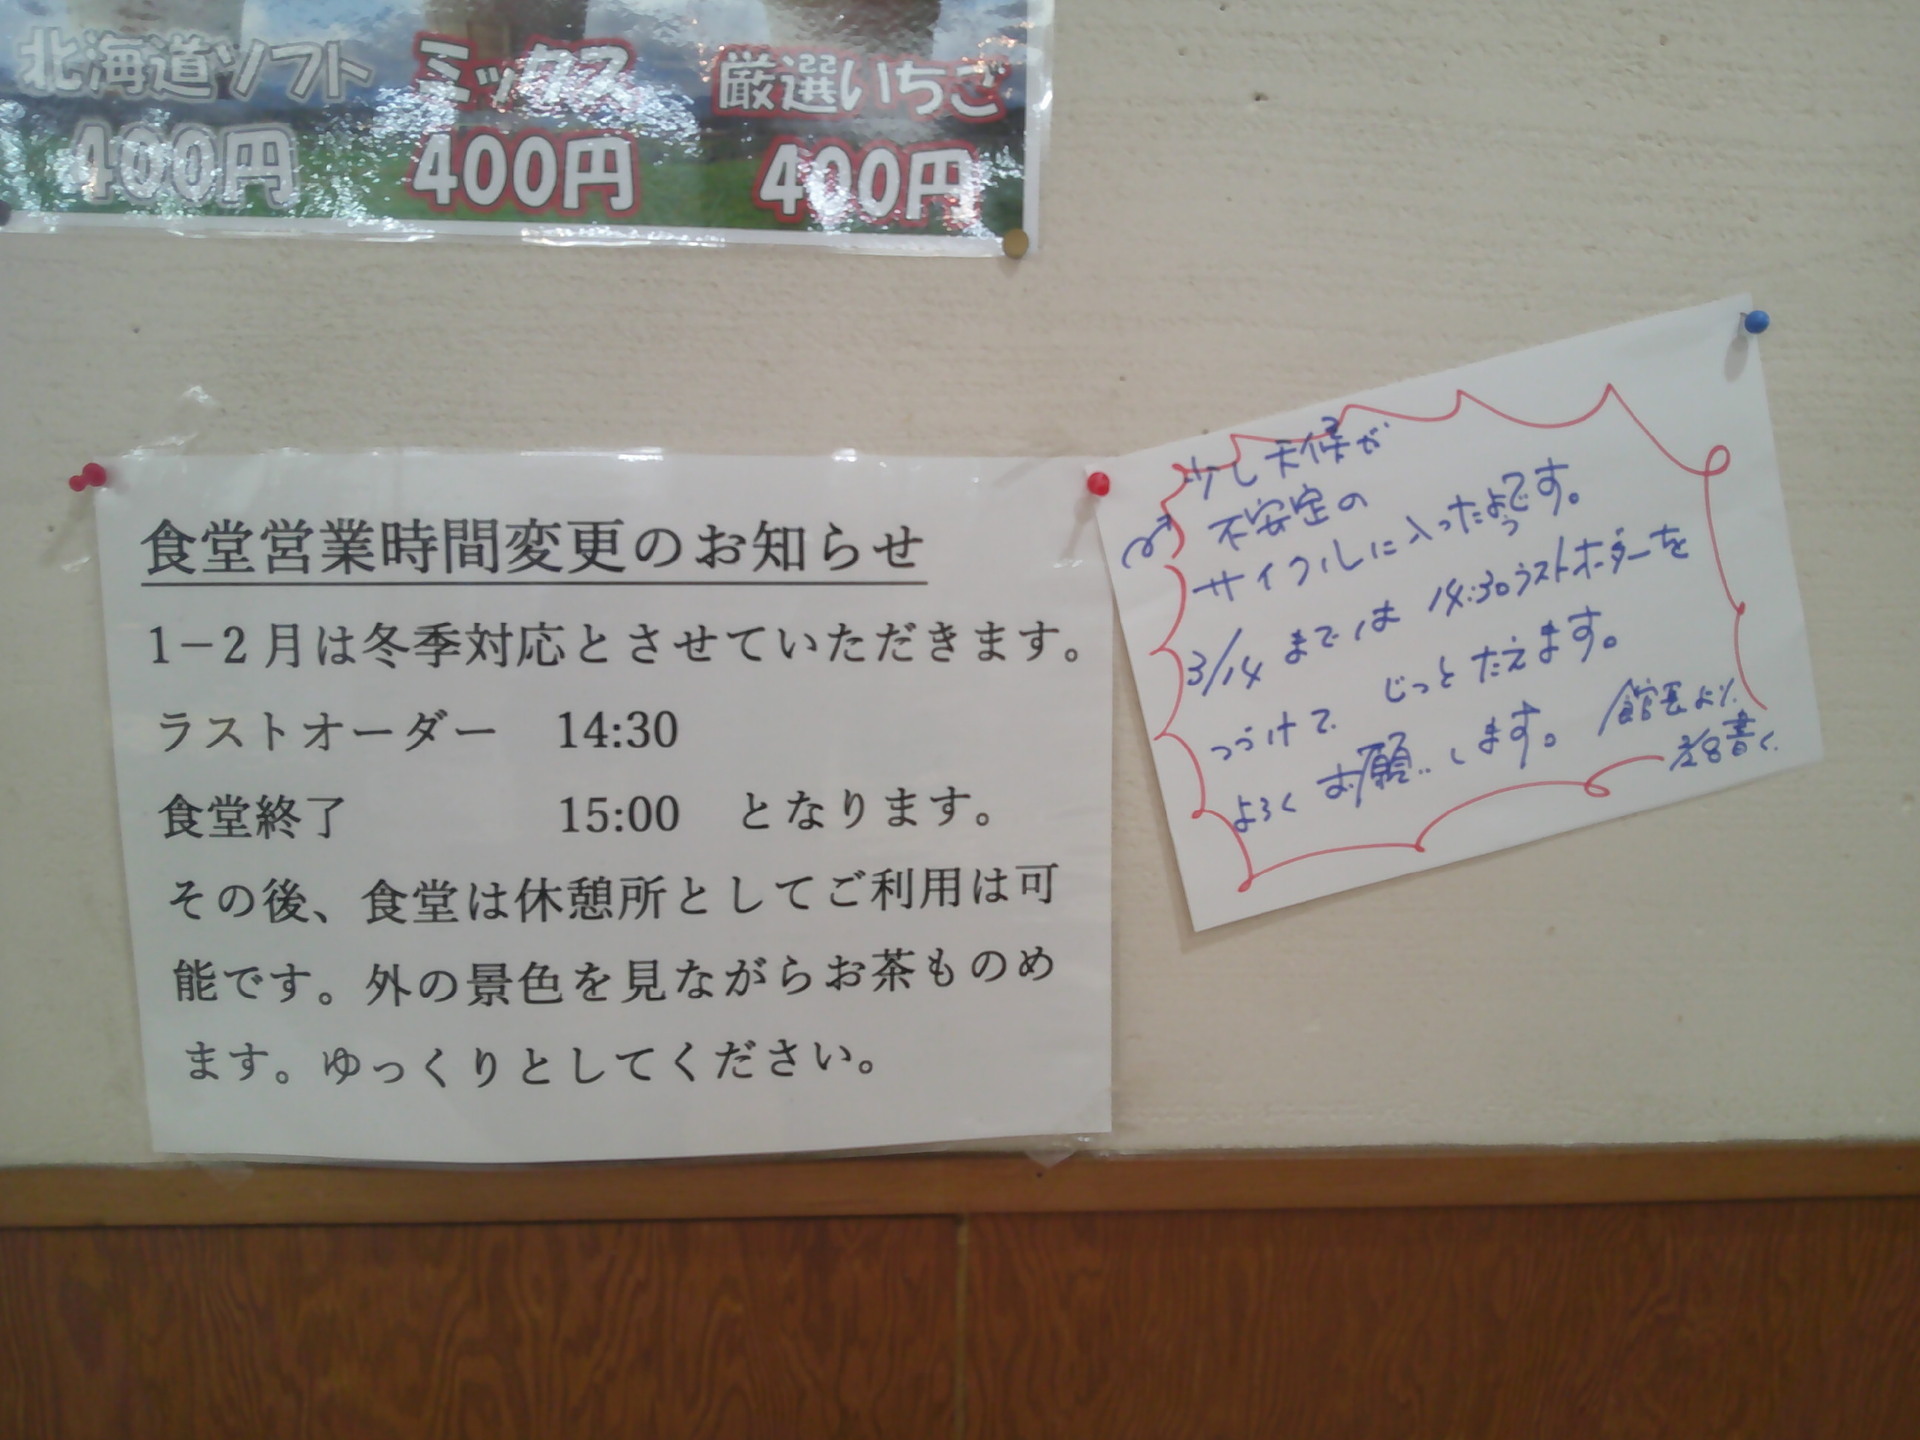 北海道ソフト ミックス 厳選いちご
400円 400円 400円
食堂営業時間変更のお知らせ
1−2月は冬季対応とさせていただきます。
ラストオーダー 14:30
食堂終了 15:00 となります。
その後、食堂は休憩所としてご利用は可
能です。外の景色を見ながらお茶ものめ
ます。ゆっくりとしてください。
少し天候が
不安定の
サイクルに入ったようです。
3/14 までは 14:30ラストオーダーを
つづけて じっとたえます。
よろく お願いします。 館長より
2/28書く